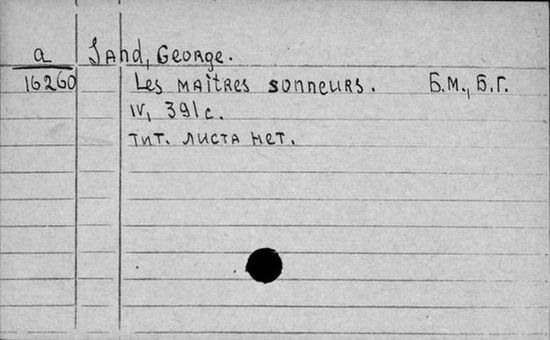 a Sand, George.
16260 Les maîtres sonneurs. Б.М., Б.Г.
IV, 391 с.
тит. листа нет.